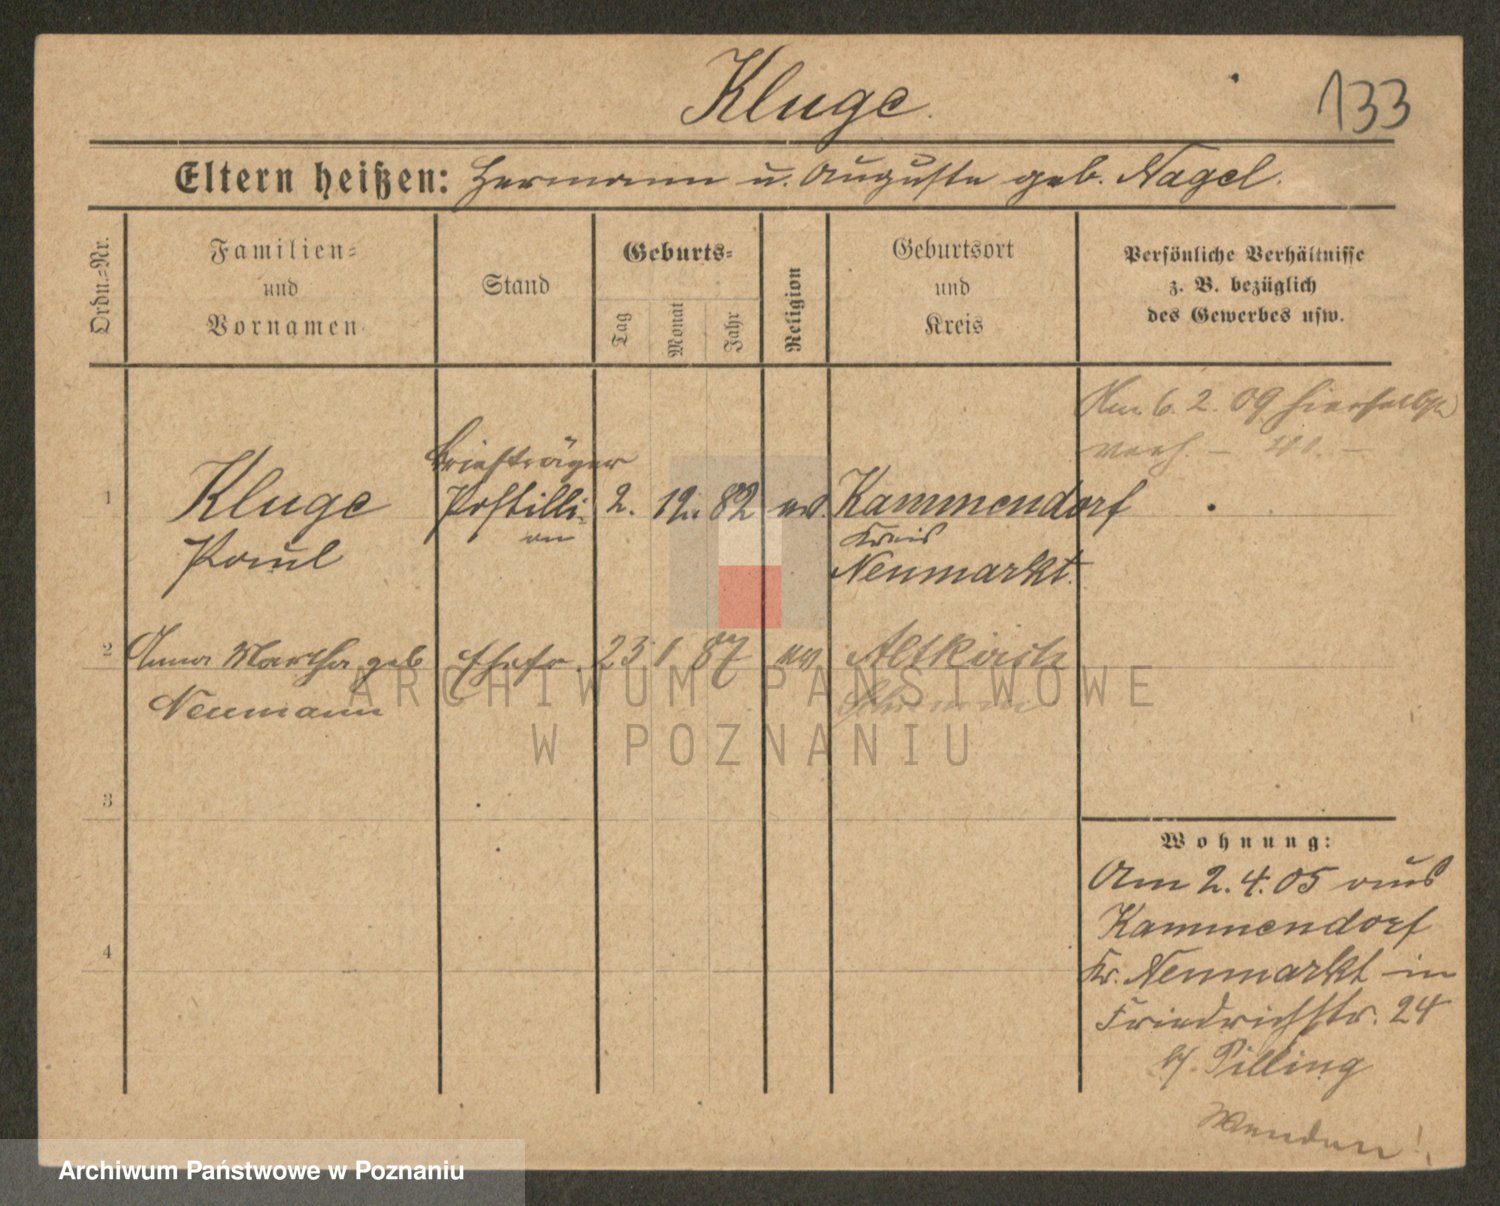 Kluge.
133
Eltern heißen: Hermann u. Auguste geb. Nagel.
Ordn.-Nr.
Familien-
und
Vornamen
Stand
Geburts-
Tag
Monat
Jahr
Religion
Geburtsort
und
Kreis
Persönliche Verhältnisse
z. B. bezüglich
des Gewerbes usw.
Am 6. 2. 09 hierselbst
verh.
1
Kluge
Paul
Briefträger
Postilli-
on
2. 12. 82 ev.
Kammendorf
Kreis
Neumarkt.
2
Anna Martha geb
Neumann
Ehefr. 23 1 87 ev
Altkirch
3
4
Wohnung:
Am 2. 4. 05 aus
Kammendorf
Kr. Neumarkt in
Friedrichstr. 24
b/ Pilling
Wenden!
ARCHIWUM PAŃSTWOWE
W POZNANIU
Archiwum Państwowe w Poznaniu